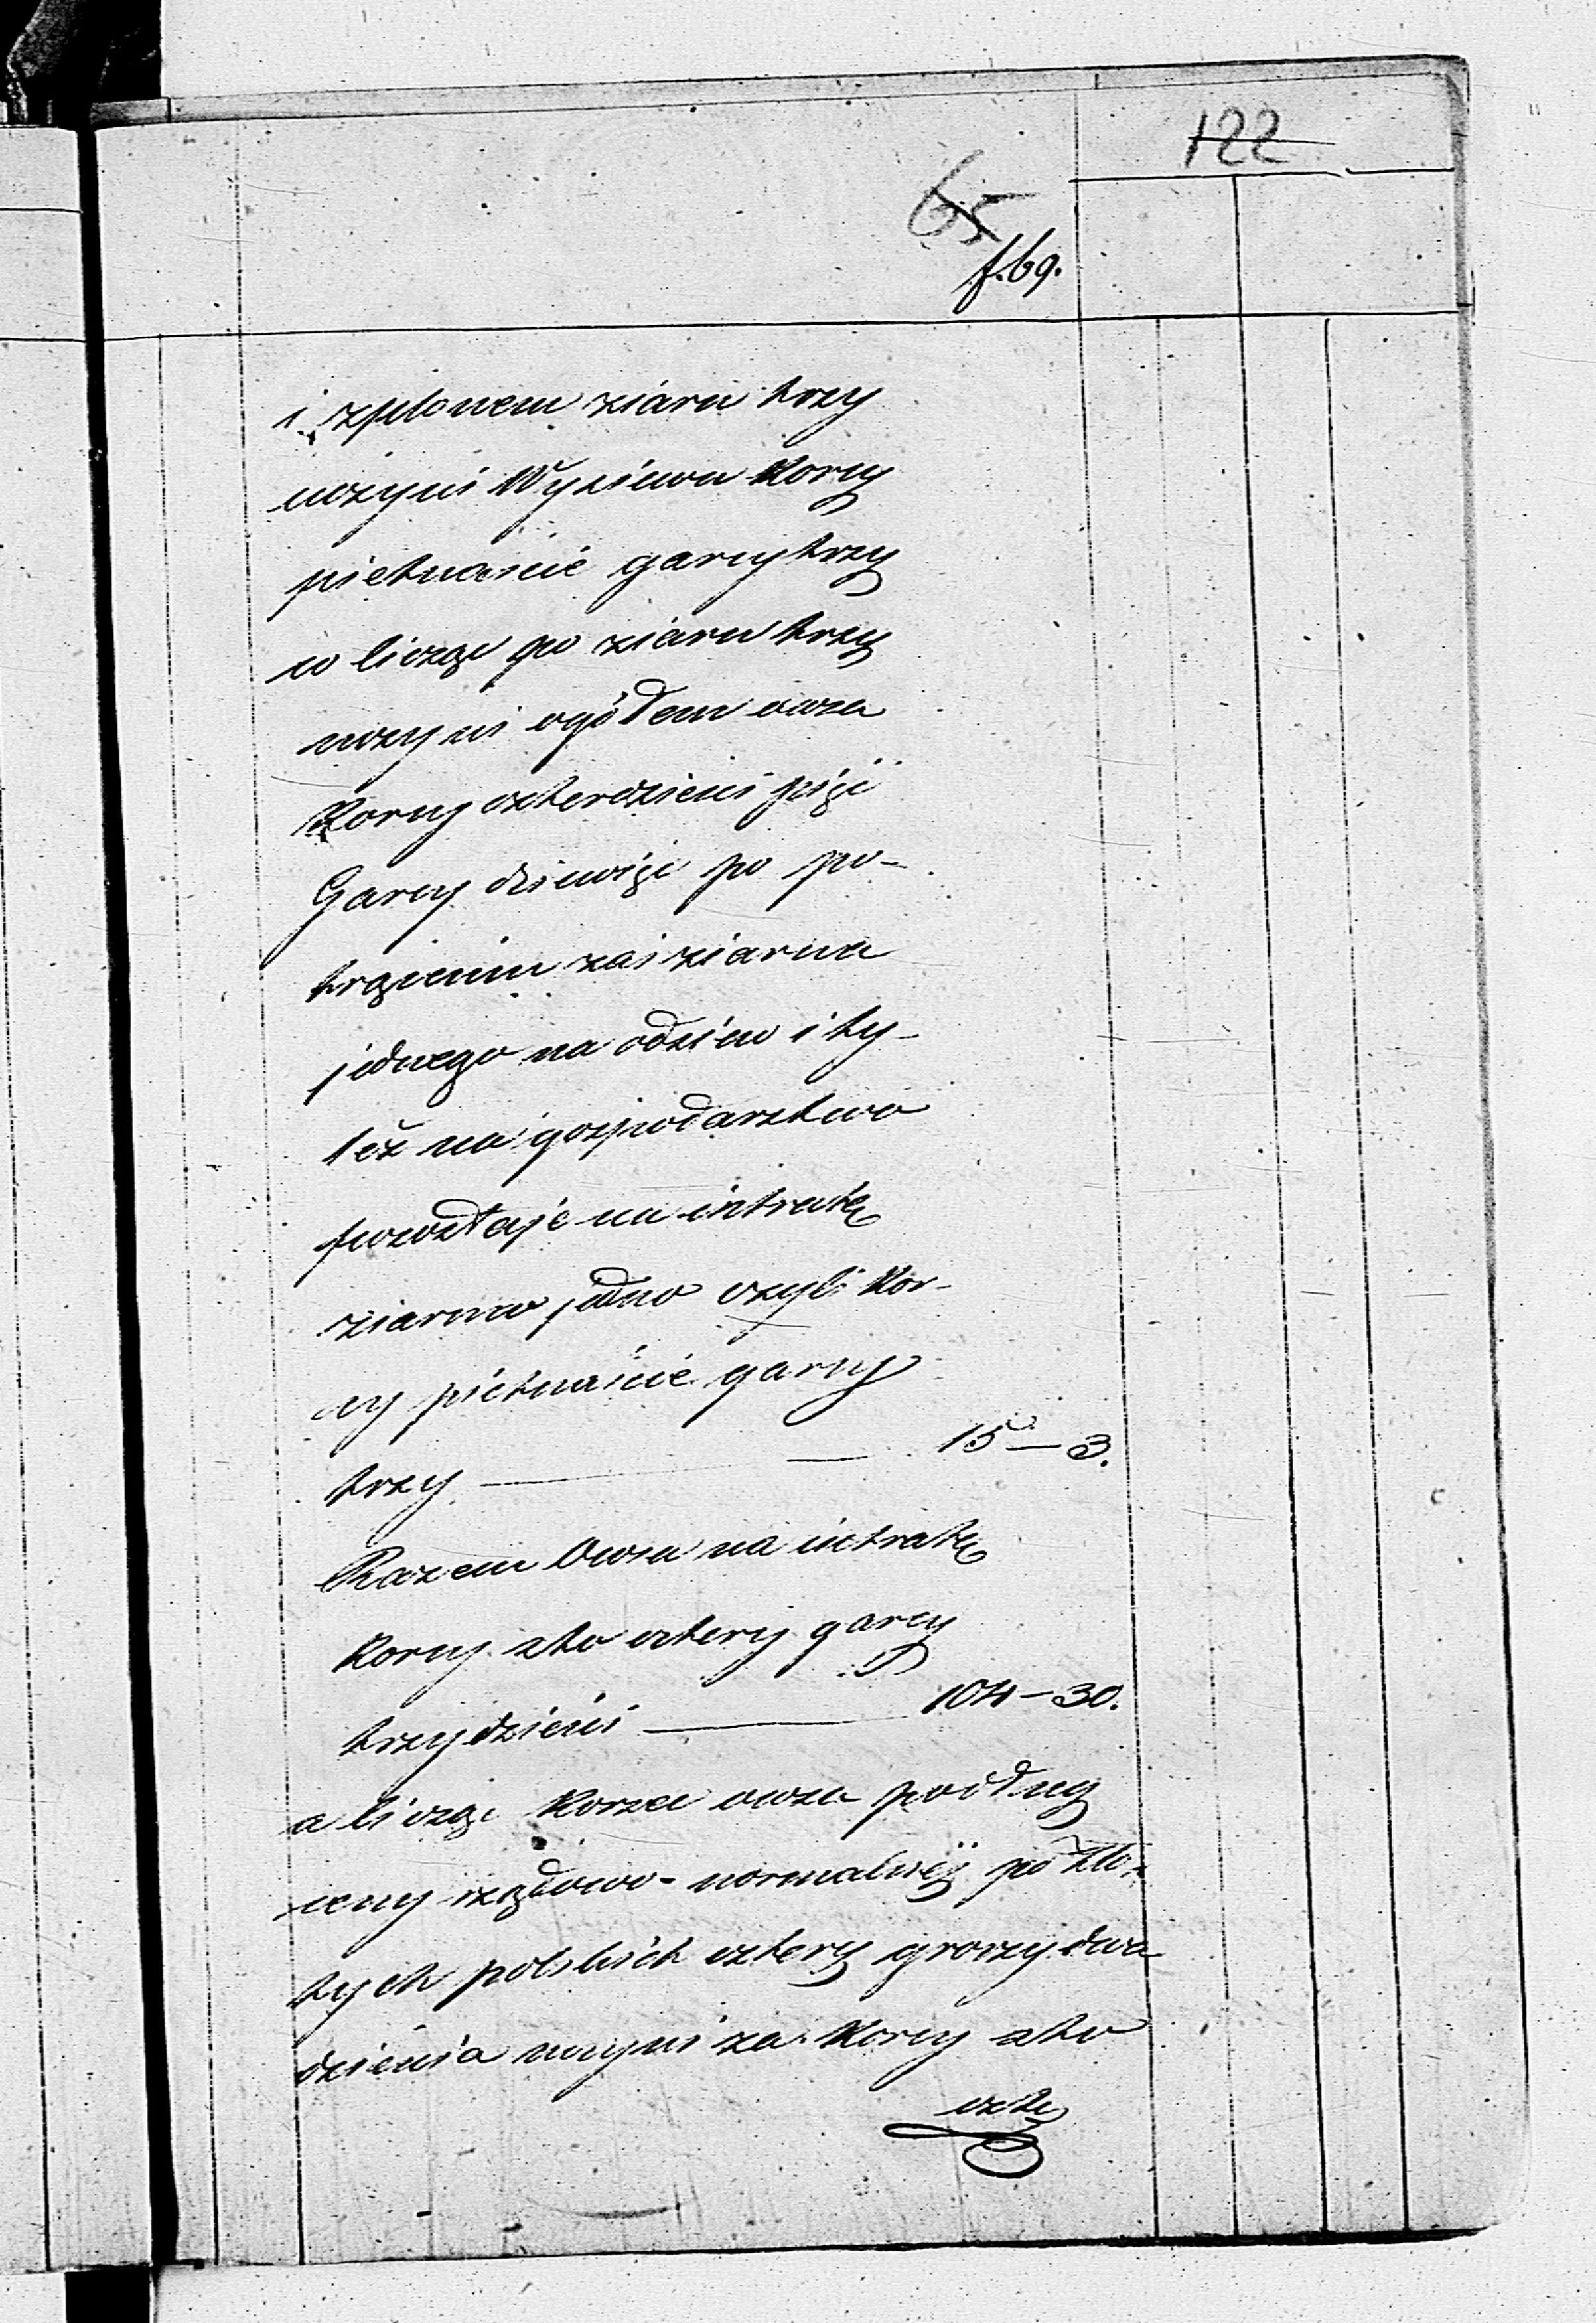 122
65
f. 69.
i zplonem ziarn trzy
uczyni Wysiewu Korcy
pietnaście garcy trzy
co licząc po ziarn trzy
uczyni ogółem owsa
Korcy czterdzieści pięć
Garcy dziewięć po po-
trąceniu zaś ziarna
jednego na odsiew i ty-
leż na gospodarstwo
pozostaje na intratę
ziarno jedno czyli Kor-
cy pietnaście garcy
trzy — — 15 — 3.
Razem Owsa na intratę
Korcy sto cztery garcy
trzydzieści — 104 — 30.
a licząc Korzec owsa podług
ceny rządowo-normalnéj po Zło-
tych polskich cztery groszy dwa
dzieścia uczyni za Korcy sto
czte